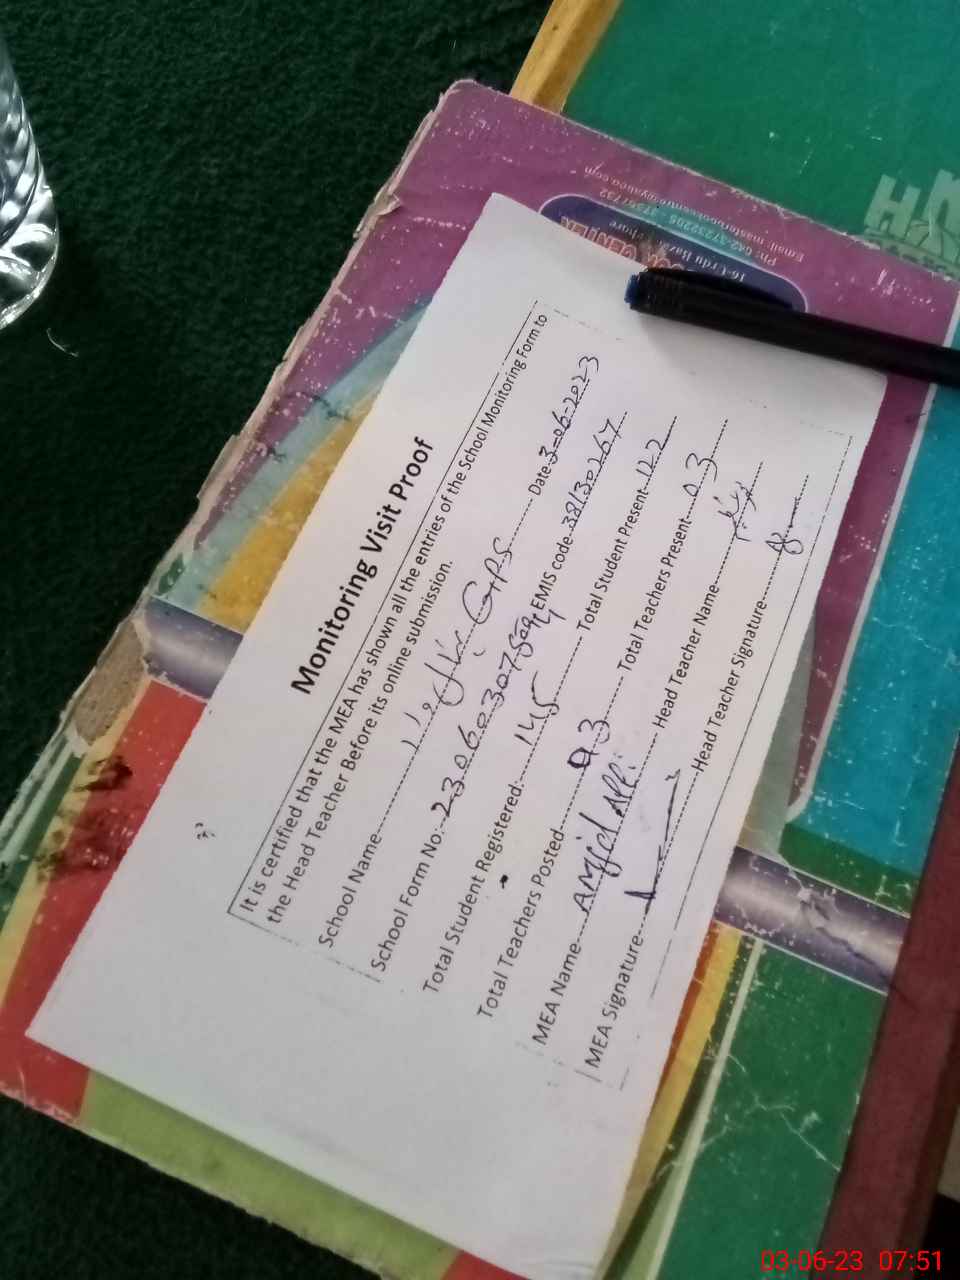 Monitoring Visit Proof
It is certified that the MEA has shown all the entries of the School Monitoring Form to
the Head Teacher Before its online submission.
School Name GPS Date 3-06-2023
School Form No: EMIS code 38130267
Total Student Registered: 145 Total Student Present 122
Total Teachers Posted 03 Total Teachers Present 03
MEA Name Amjid Ali Head Teacher Name
MEA Signature Head Teacher Signature
BOOK CENTER
16-Urdu Bazar Lahore
Ph: 042-37232205 - 37367732
Email: masterbookcentre@yahoo.com
03-06-23 07:51